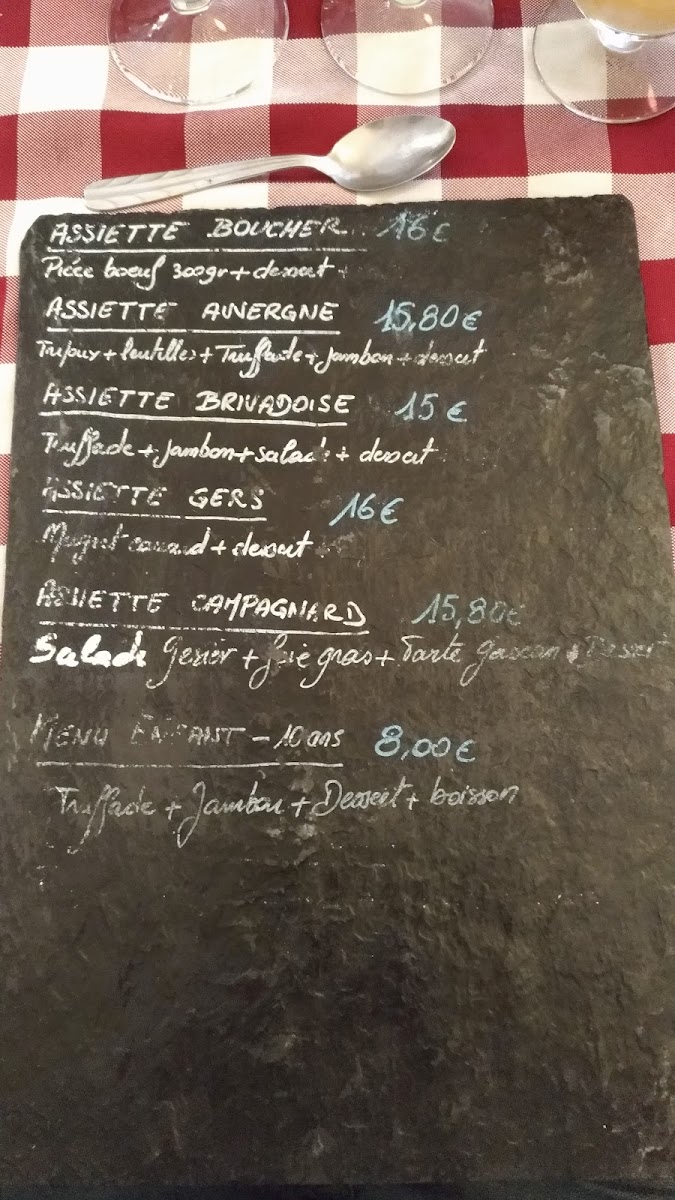 ASSIETTE BOUCHER 16€
Pièce boeuf 300gr + dessert
ASSIETTE AUVERGNE 15,80€
Tripoux + lentilles + Truffade + jambon + dessert
ASSIETTE BRIVADOISE 15€
Truffade + jambon + salade + dessert
ASSIETTE GERS 16€
Magret canard + dessert
ASSIETTE CAMPAGNARD 15,80€
Salade gesier + foie gras + Tarte gascon + Dessert
MENU ENFANT - 10 ans 8,00€
Truffade + Jambon + Dessert + boisson